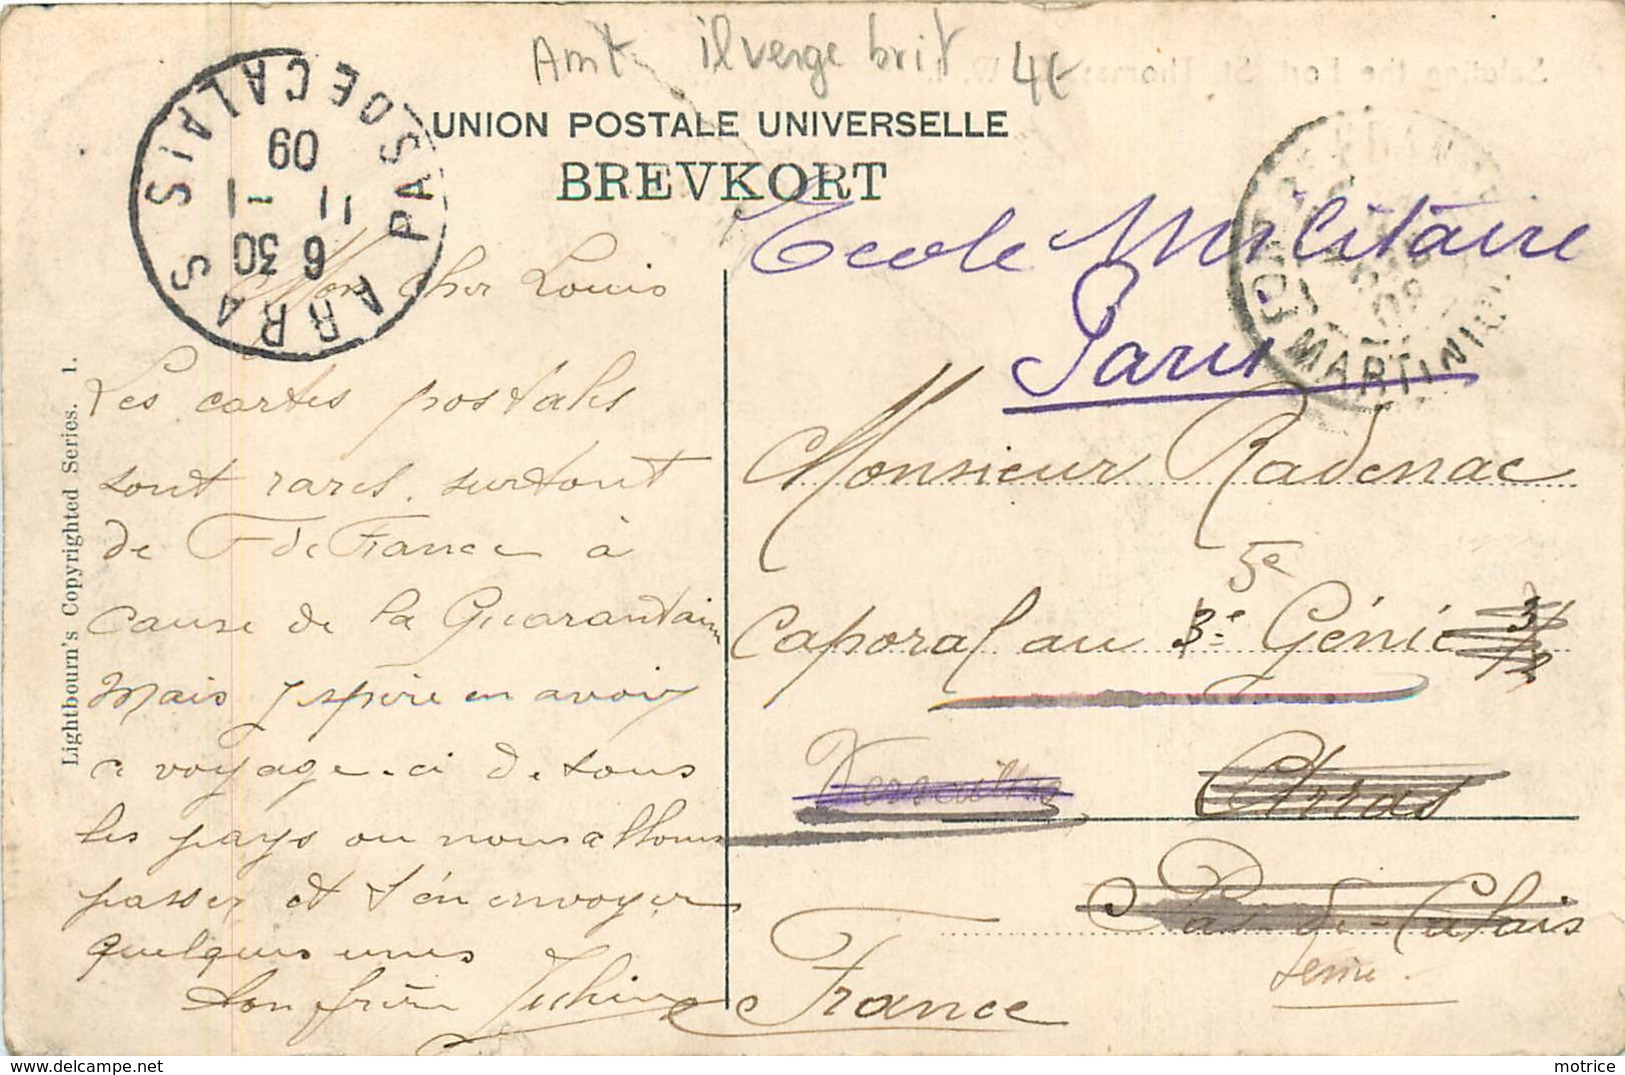 4€
UNION POSTALE UNIVERSELLE
BREVKORT
ARRAS
PAS DE CALAIS
6 30
11 - 1
09
MARTINIQUE
Ecole Militaire
Paris
Mon cher Louis
Les cartes postales
sont rares. surtout
de F de France à
cause de la Quarantaine
Mais j'espère en avoir
ce voyage-ci de tous
les pays ou nous allons
passer et t'en envoyer
quelques unes
ton frère
Monsieur Radenac
5e
Caporal au 3e Génie
Versailles
Arras
Pas-de-Calais
Seine.
France
Lightbourn's Copyrighted Series. 1.
Saluting the Fort, St. Thomas
motrice